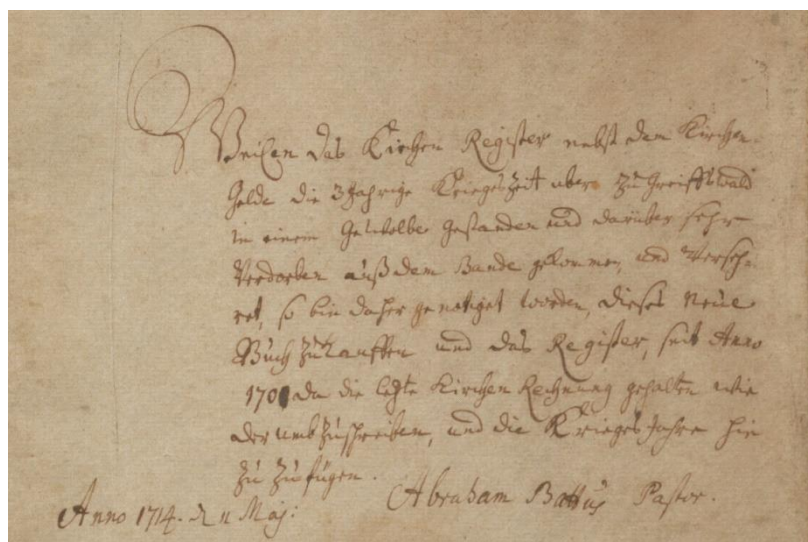 Weilen das Kirchen Register nebst dem Kirchen-
Gelde die 3 Jahrige Kriegeszeit uber zu Greiffswald
in einem Gewolbe gestanden und darüber sehr
verdorben auß dem Bande gekommen, und verseh-
ret, so bin daher genötiget worden, dieses neue
Buch zu kauffen und das Register, seit Anno
da die letzte Kirchen Rechnung gehalten wie
der umbzuschreiben, und die Krieges Jahre hin
zu zufügen.
Abraham Battus Pastor.
Anno 1714. d 11 Maj: